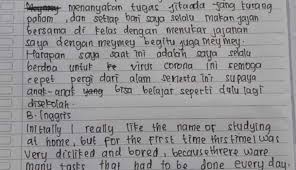 menanyakan tugas jika ada yang kurang
paham, dan setiap hari saya selalu makan jajan
bersama di kelas dengan menukar jajanan
saya dengan meymey begitu juga meymey.
Harapan saya saat ini adalah saya selalu
berdoa untuk virus corona ini semoga
cepet pergi dari alam semesta ini supaya
anak-anak yang bisa belajar seperti dulu lagi
disekolah.
B. Inggris
Initially I really like the name of studying
at home, but for the first time this time I was
Very disliked and bored, because there were
many tasks that had to be done every day.